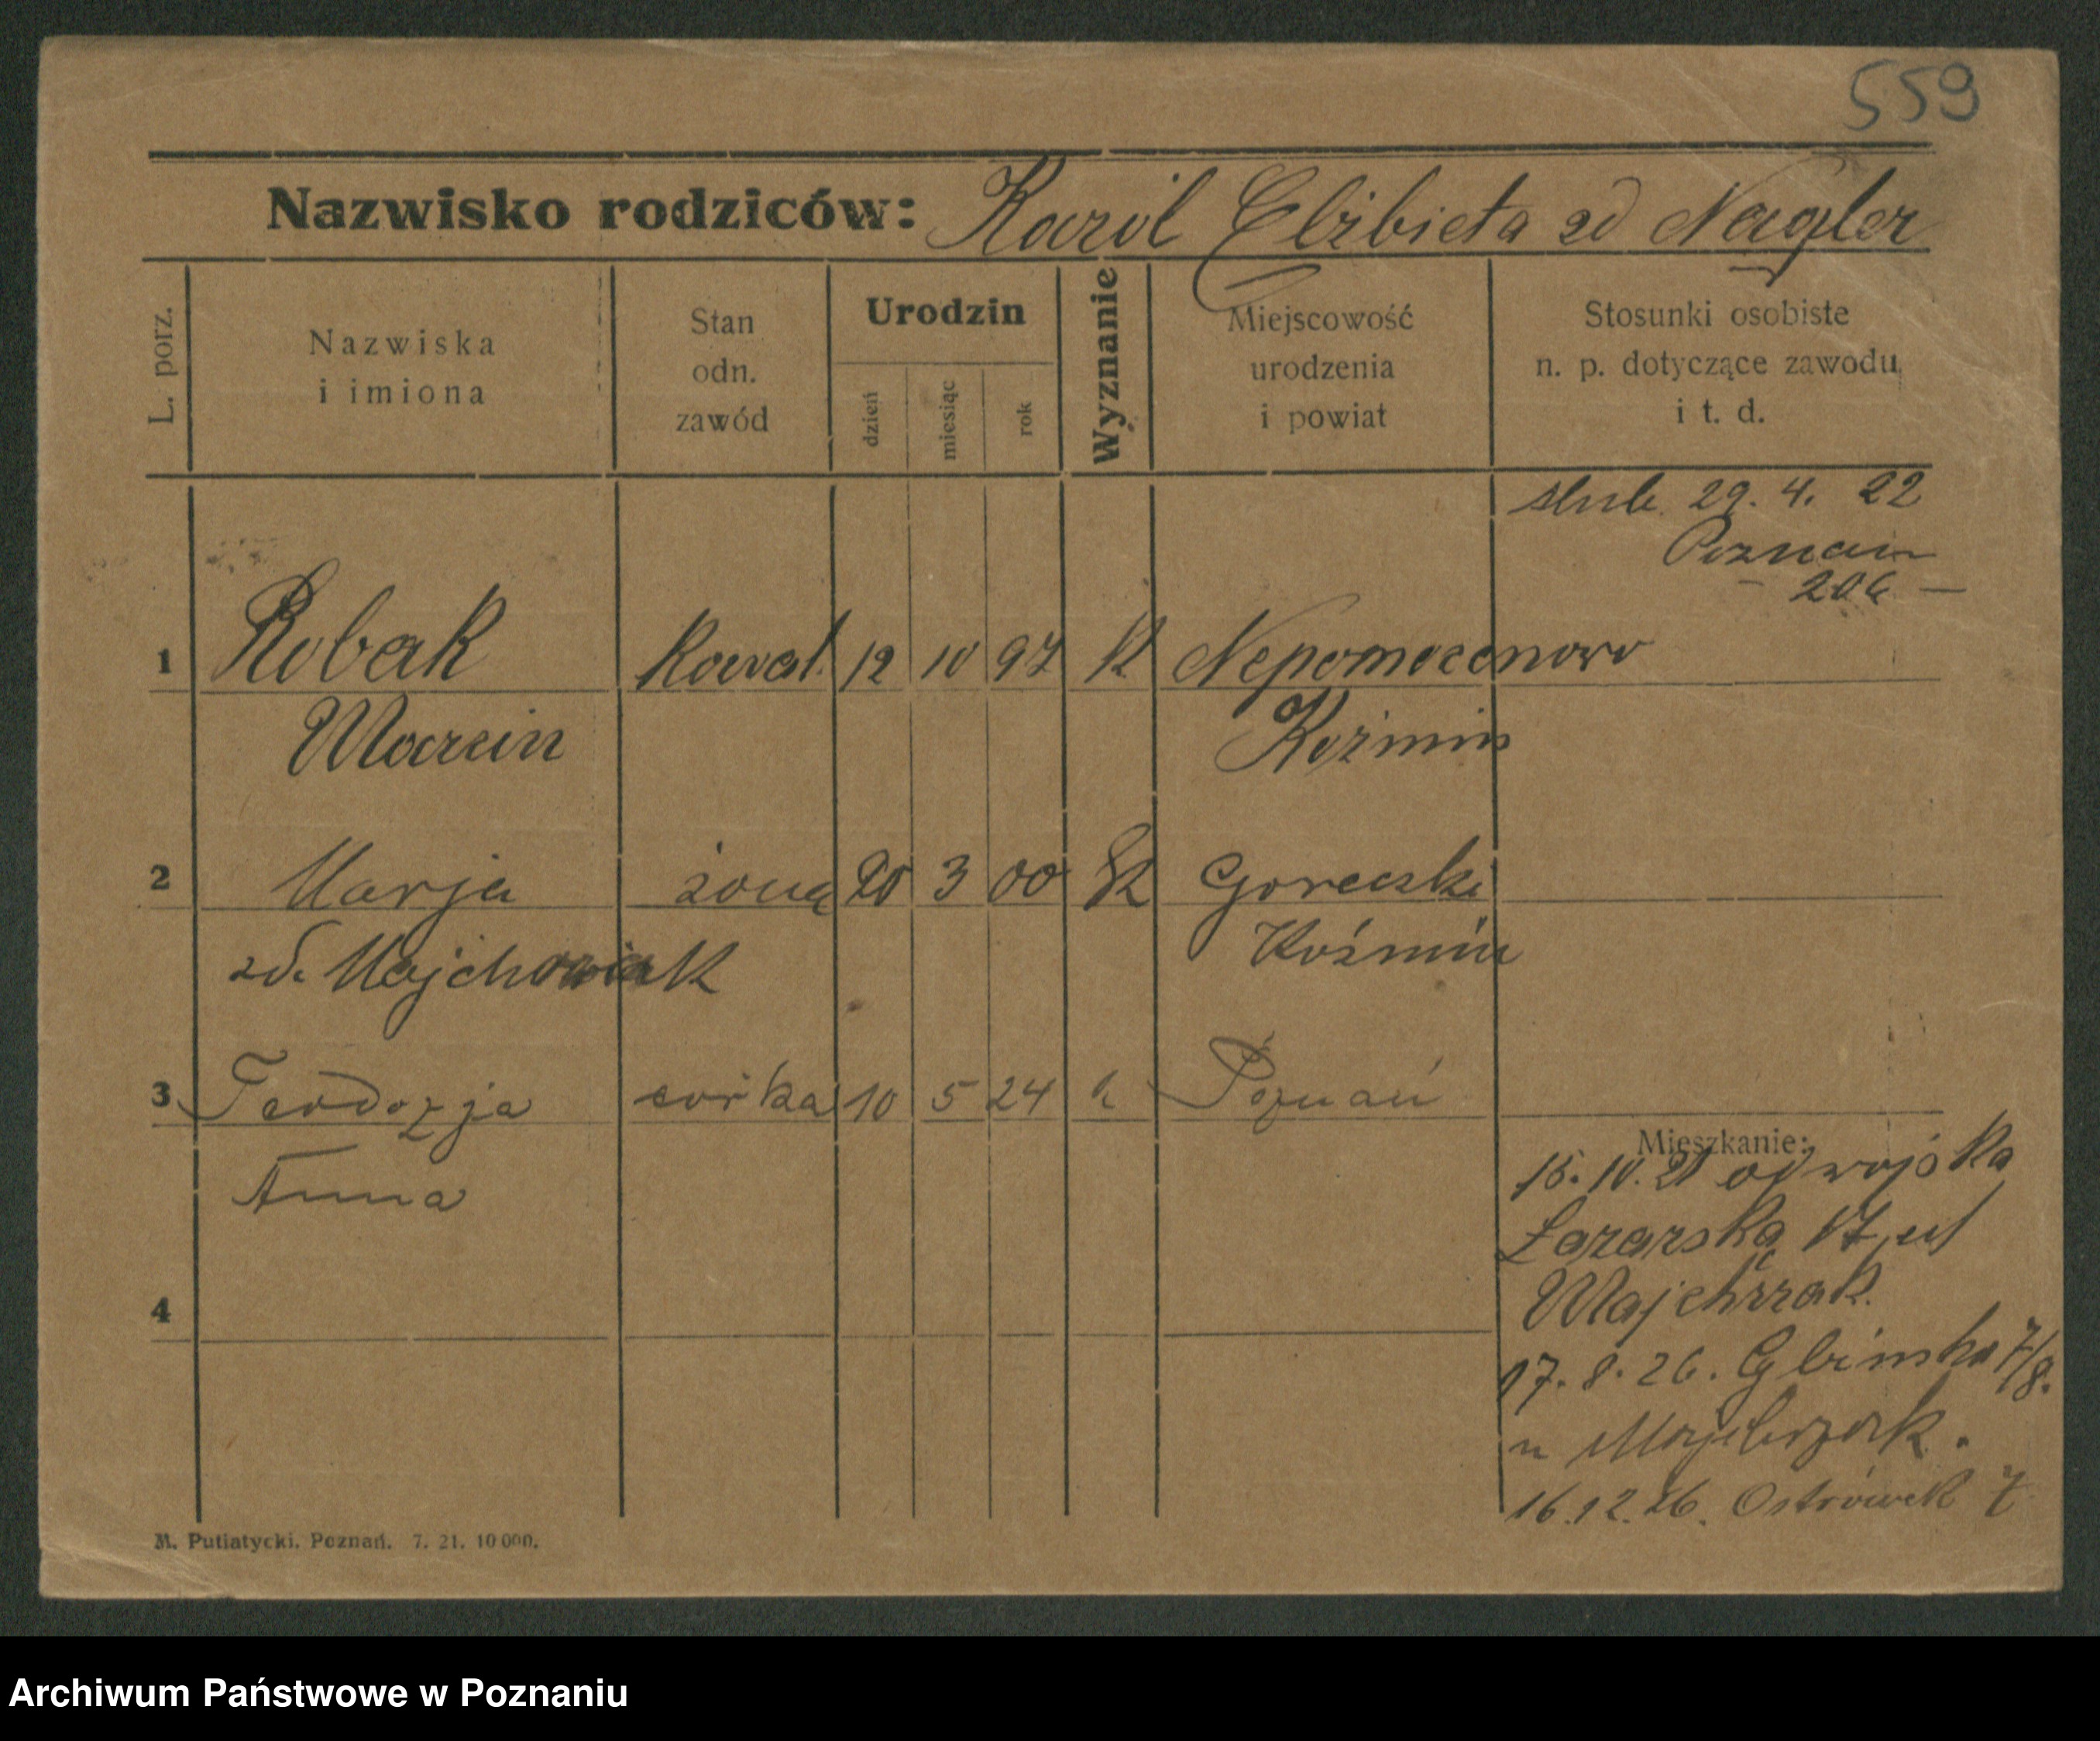 559
Nazwisko rodziców: Karol Elżbieta zd Nagler
L. porz.
Nazwiska
i imiona
Stan
odn.
zawód
Urodzin
dzień
miesiąc
rok
Wyznanie
Miejscowość
urodzenia
i powiat
Stosunki osobiste
n. p. dotyczące zawodu
i t. d.
slub. 29. 4. 22
Poznań
- 206 -
1 Robak Kawal. 12 10 97 K Nepomucenowo
Marcin Kozmin
2 Marja żona 20 3 00 K Goreczki
zd. Majchowiak Kośmin
3 Teodozja corka 10 5 24 k Poznań
Anna
Mieszkanie:
15. 10. 21 od wojska
Łazarska 17, u
Majchrzak.
4
17. 8. 26. Glinska 7/8.
u Majchrzak.
16.12.26. Ostrówek 7
M. Putiatycki. Poznań. 7. 21. 10 000.
Archiwum Państwowe w Poznaniu